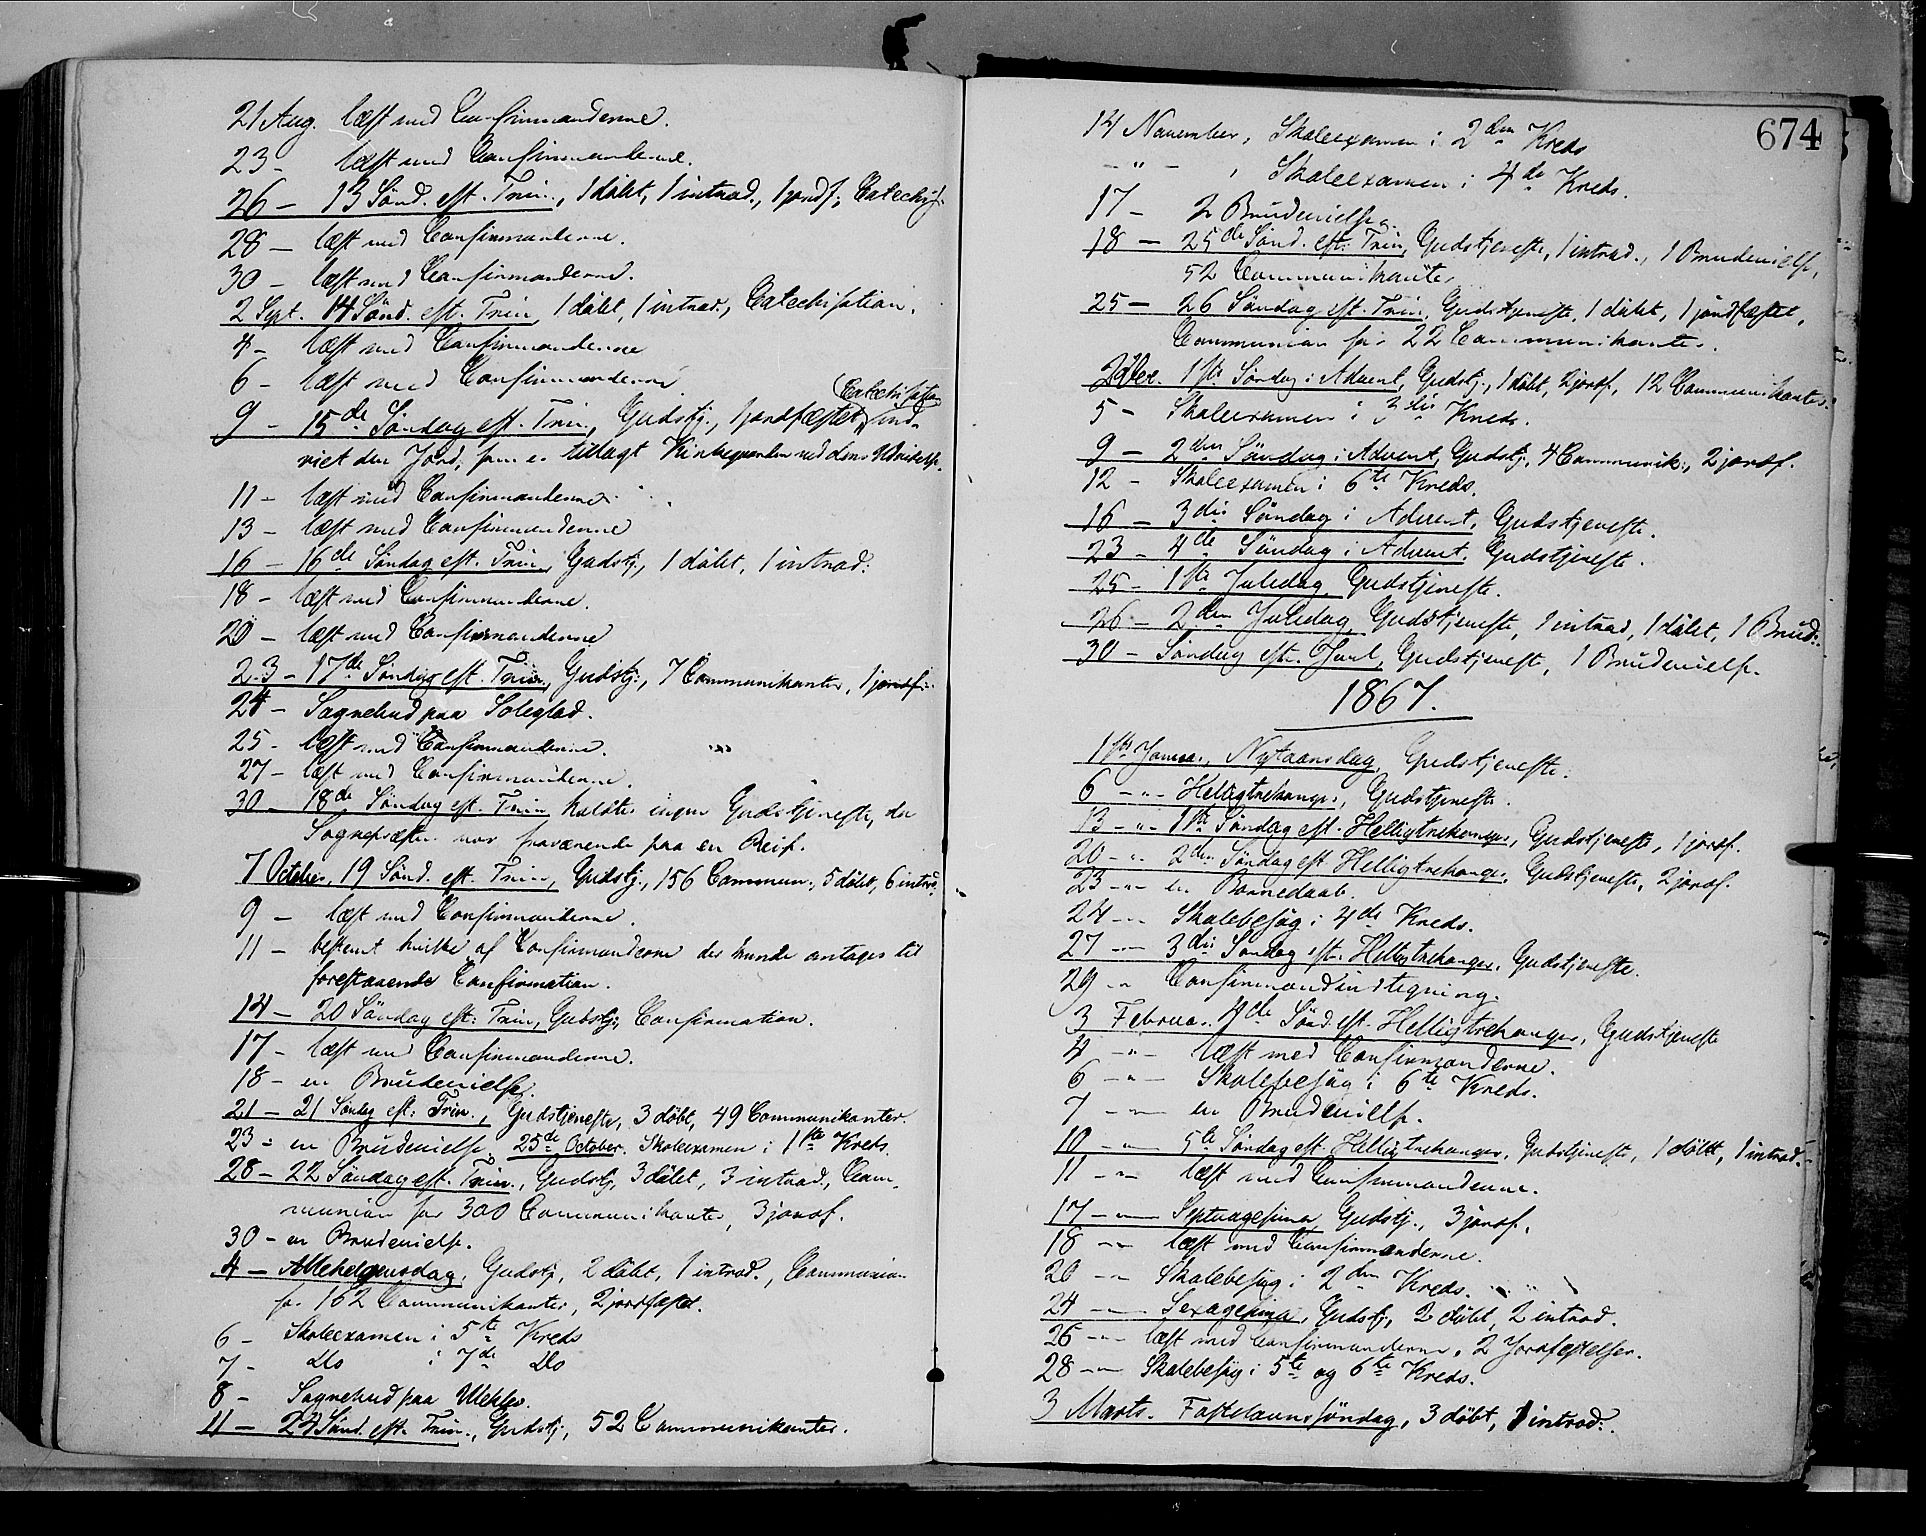 21 Aug. læst med Confirmanderne.
23 - læst med Confirmanderne.
26 - 13 Sönd. eft. Trin., 1 döbt, 1 introd., 1 jordf., Catechis.
28 - læst med Confirmanderne.
30 - læst med Confirmanderne.
2 Sept. 14 Sönd. eft. Trin, 1 döbt, 1 introd., Catechisation.
4 - læst med Confirmanderne
6 - læst med Confirmanderne
Catechisation
9 - 15de Söndag eft. Trin., Gudstj., 1 jordfæstet, ind-
viet den Jord, som er tillagt Kirkegaarden ved dens Udvidelse.
11 - læst med Confirmanderne
13 - læst med Confirmanderne
16 - 16de Söndag eft. Trin, Gudstj., 1 döbt, 1 introd.
18 - læst med Confirmanderne.
20 - læst med Confirmanderne
23 - 17de Söndag eft. Trin, Gudstj., 7 Communikanter, 1 jordf.
24 - Sognebud paa Soleglad.
25 - læst med Confirmanderne.
27 - læst med Confirmanderne.
30 - 18de Söndag eft. Trin holdtes ingen Gudstjeneste, da
Sognepræsten var fraværende paa en Reise.
7 October, 19 Sönd. eft. Trin, Gudstj., 156 Commun., 5 döbt, 6 introd.
9 - læst med Confirmanderne.
11 - bestemt hvilke af Confirmanderne der kunde antages til
forestaaende Confirmation.
14 - 20 Söndag eft: Trin, Gudstj, Confirmation.
17 - læst med Confirmanderne.
18 - en Brudevielse.
21 - 21 Söndag eft: Trin., Gudstjeneste, 3 döbt, 49 Communikanter.
23 - en Brudevielse, 25de October. Skoleexamen i 1ste Kreds.
28 - 22 Söndag eft. Trin., Gudstj, 3 döbt, 3 introd., Com-
munion for 300 Communikanter, 3 jordf.
30 - en Brudevielse.
4 - Allehelgensdag, Gudstj, 2 döbt, 1 introd., Communion
for 162 Communikanter, 2 jordfæstet.
6 - Skoleexamen i 5te Kreds
7 - Do i 7de Do
8 - Sognebud paa
11 - 24 Sönd. eft. Trin., Gudstj, 52 Communikanter.
674
14 November, Skoleexamen i 2den Kreds
- " - , Skoleexamen i 4de Kreds.
17 - 2 Brudevielser.
18 - 25de Sönd. eft: Trin, Gudstjeneste, 1 introd., 1 Brudevielse,
52 Communikanter
25 - 26 Söndag eft. Trin, Gudstjeneste, 1 döbt, 1 jordfæstet,
Communion for 22 Communikanter.
2 Dec. 1ste Söndag i Advent, Gudstj., 1 döbt, 2 jordf., 12 Communikanter.
5 - Skoleexamen i 3die Kreds.
9 - 2den Söndag i Advent, Gudstj., 4 Communik., 2 jordf.
12 - Skoleexamen i 6te Kreds.
16 - 3die Söndag i Advent, Gudstjeneste.
23 - 4de Söndag i Advent, Gudstjeneste.
25 - 1ste Juledag, Gudstjeneste.
26 - 2den Juledag, Gudstjeneste, 1 introd, 1 döbt, 1 Brud.
30 - Söndag eft. Juul, Gudstjeneste, 1 Brudevielse.
1867.
1ste Januar, Nytaarsdag, Gudstjeneste.
6 - " - Helligtrekonger, Gudstjeneste.
13 - " - 1ste Söndag eft. Helligtrekonger, Gudstjeneste, 1 jordf.
20 - " 2den Söndag eft Helligtrekonger, Gudstjeneste, 2 jordf.
23 - " - en Barnedaab.
24 - " - Skolebesög i 4de Kreds.
27 - " - 3die Söndag eft. Helligtrekonger, Gudstjeneste.
29 - " Confirmandindtegning.
3 Februar. 4de Sönd. eft. Helligtrekonger, Gudstjeneste
4 - " - læst med Confirmanderne.
6 - " - Skolebesög i 6te Kreds.
7 - " - en Brudevielse.
10 - " - 5te Söndag eft Helligtrekonger, Gudstjeneste, 1 döbt, 1 introd.
11 - " - læst med Confirmanderne.
17 - " - Septuagesima, Gudstj., 3 jordf.
18 - " læst med Confirmanderne.
20 - " Skolebesög i 2den Kreds.
24 - " - Sexagesima, Gudstj, 2 döbt, 2 introd.
26 - " - læst med Confirmanderne, 2 Jordfæstelser.
28 - " - Skolebesög i 5te og 6te Kreds.
3 Marts. Fastelavnssöndag, 3 döbt, 1 introd.